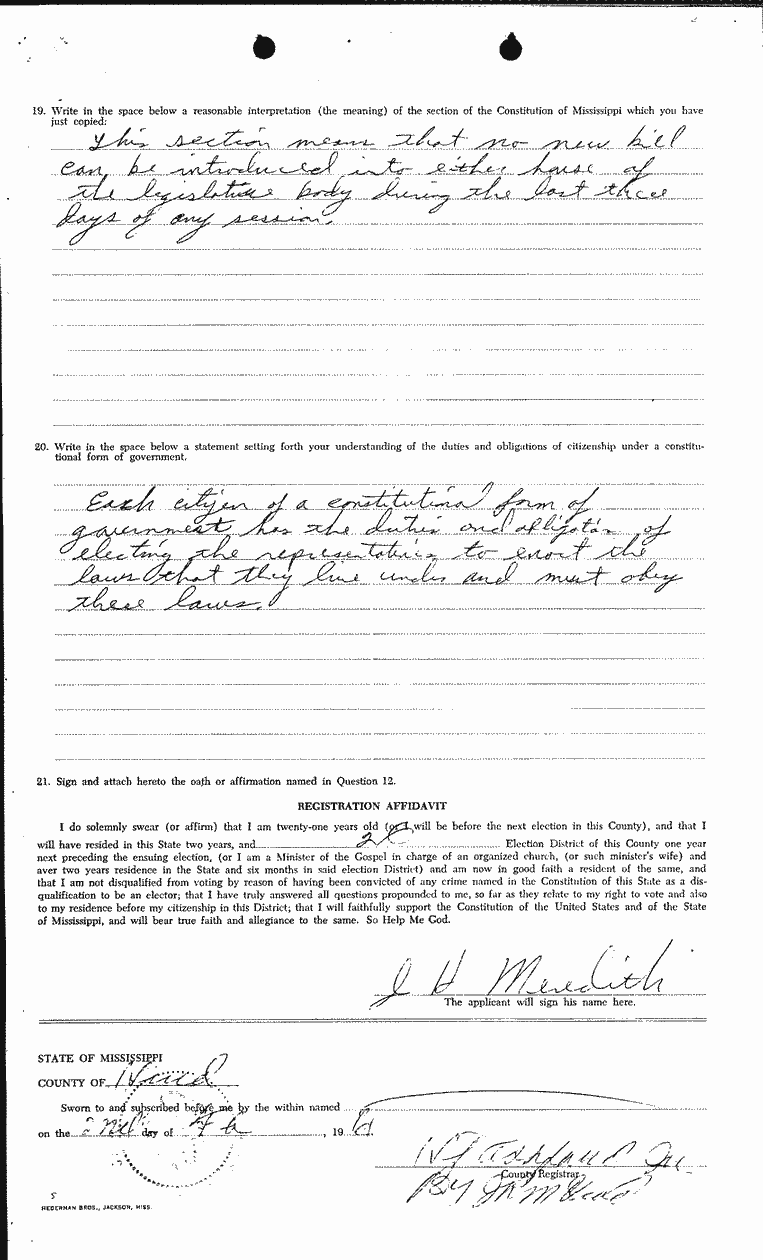 19. Write in the space below a reasonable interpretation (the meaning) of the section of the Constitution of Mississippi which you have
just copied:
This section means that no new bill
can be introduced into either house of
the legislative body during the last three
days of any session.
20. Write in the space below a statement setting forth your understanding of the duties and obligations of citizenship under a constitu-
tional form of government.
Each citizen of a constitutional form of
government has the duties and obligation of
electing the representatives to enact the
laws that they live under and must obey
these laws.
21. Sign and attach hereto the oath or affirmation named in Question 12.
REGISTRATION AFFIDAVIT
I do solemnly swear (or affirm) that I am twenty-one years old (or I will be before the next election in this County), and that I
will have resided in this State two years, and Election District of this County one year
next preceding the ensuing election, (or I am a Minister of the Gospel in charge of an organized church, (or such minister's wife) and
aver two years residence in the State and six months in said election District) and am now in good faith a resident of the same, and
that I am not disqualified from voting by reason of having been convicted of any crime named in the Constitution of this State as a dis-
qualification to be an elector; that I have truly answered all questions propounded to me, so far as they relate to my right to vote and also
to my residence before my citizenship in this District; that I will faithfully support the Constitution of the United States and of the State
of Mississippi, and will bear true faith and allegiance to the same. So Help Me God.
J H Meredith
The applicant will sign his name here.
STATE OF MISSISSIPPI
COUNTY OF Hinds
Sworn to and subscribed before me by the within named
on the 2nd day of Feb, 1961.
County Registrar
By
HEDERMAN BROS., JACKSON, MISS.